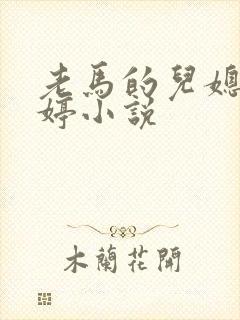 老馬的兒媳
婷小説
木蘭花開